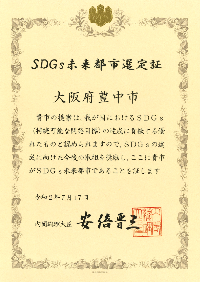 SDGs未来都市選定証
大阪府豊中市
貴市の提案は、我が国におけるSDGs
(持続可能な開発目標)の達成に資する優
れたものと認められますので、SDGsの達
成に向けた今後の取組を期待し、ここに貴市
がSDGs未来都市であることを証します
令和2年7月17日
内閣総理大臣 安倍晋三